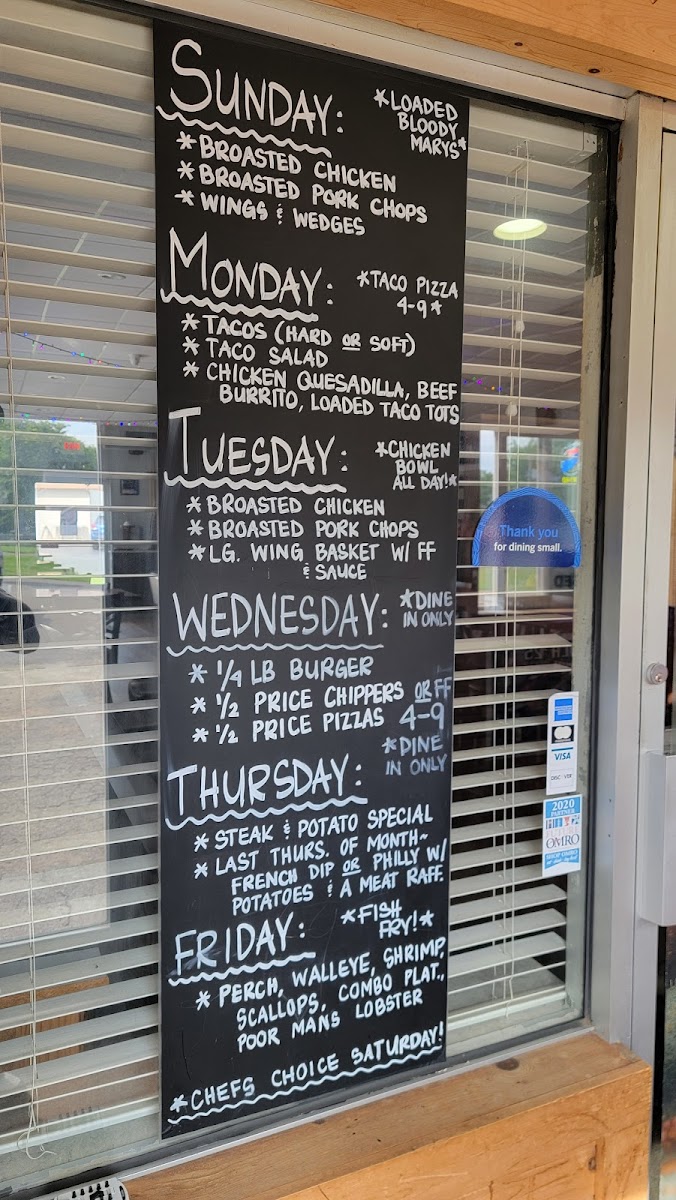 SUNDAY:
*LOADED
BLOODY
MARYS*
* BROASTED CHICKEN
* BROASTED PORK CHOPS
* WINGS & WEDGES
MONDAY:
*TACO PIZZA
4-9*
* TACOS (HARD OR SOFT)
* TACO SALAD
* CHICKEN QUESADILLA, BEEF
BURRITO, LOADED TACO TOTS
TUESDAY:
*CHICKEN
BOWL
ALL DAY!*
* BROASTED CHICKEN
* BROASTED PORK CHOPS
* LG. WING BASKET W/ FF
& SAUCE
WEDNESDAY:
*DINE
IN ONLY
* 1/4 LB BURGER
* 1/2 PRICE CHIPPERS OR FF
* 1/2 PRICE PIZZAS 4-9
THURSDAY:
*DINE
IN ONLY
* STEAK & POTATO SPECIAL
* LAST THURS. OF MONTH~
FRENCH DIP OR PHILLY W/
POTATOES & A MEAT RAFF.
FRIDAY:
*FISH
FRY!*
* PERCH, WALLEYE, SHRIMP,
SCALLOPS, COMBO PLAT.,
POOR MANS LOBSTER
*CHEFS CHOICE SATURDAY!
Thank you
for dining small.
VISA
DISCOVER
2020
PARTNER
OMRO